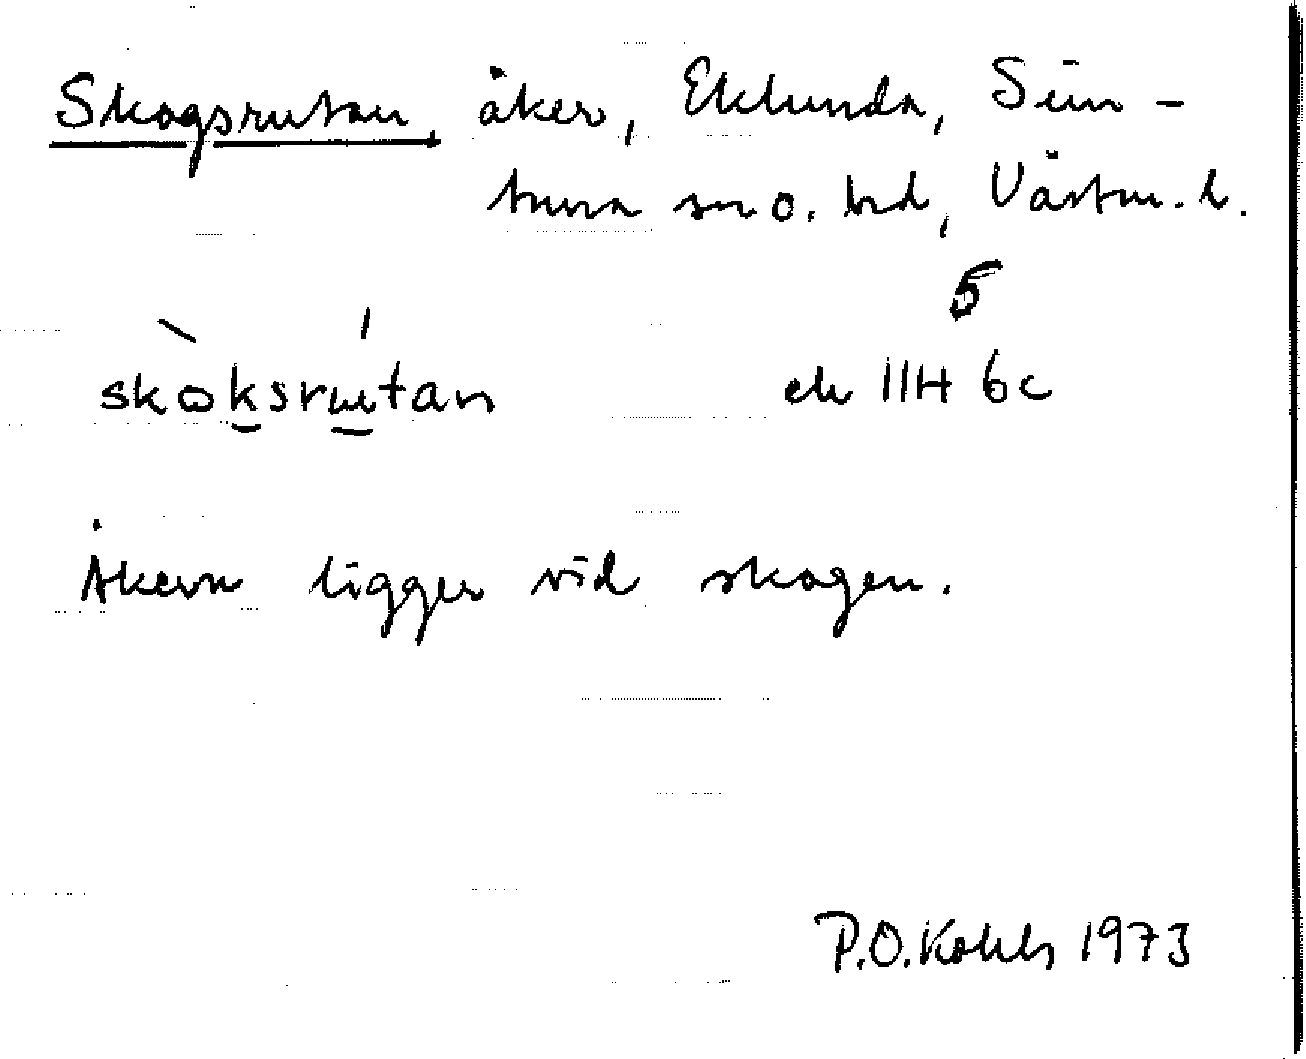 Skogsrutan, åker, Eklunda, Sim-
tuna sn o. hd, Västm. l.
5
skòksrútan ek 11H 6c
Åkern ligger vid skogen.
P.O. Kohls 1973